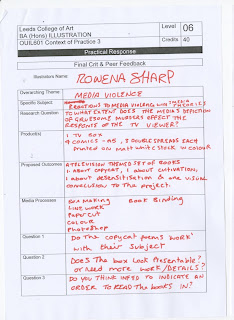 Leeds College of Art
BA (Hons) ILLUSTRATION
OUIL601 Context of Practice 3
Level 06
Credits 40
Practical Response
Final Crit & Peer Feedback
Illustrators Name ROWENA SHARP
Overarching Theme MEDIA VIOLENCE
Specific Subject REACTIONS TO MEDIA VIOLENCE WITHIN THEORIES
Research Question TO WHAT EXTENT DOES THE MEDIA'S DEPICTION
OF GRUESOME MURDERS EFFECT THE
RESPONSE OF THE TV VIEWER?
Product(s) 1 TV BOX
4 COMICS - A5, 5 DOUBLE SPREADS EACH
printed on matt white stock in colour
Proposed Outcomes A TELEVISION THEMED SET OF BOOKS
1 ABOUT COPYCAT, 1 ABOUT CULTIVATION,
1 about desensitisation & one visual
conclusion to the project.
Media Processes BOX MAKING Book Binding
LINEWORK
PAPERCUT
COLOUR
PHOTOSHOP
Question 1 Do the copycat poems work
with their subject
Question 2 Does the box look presentable?
or need more work/details?
Question 3 Do you think I need to indicate an
order to read the books in?